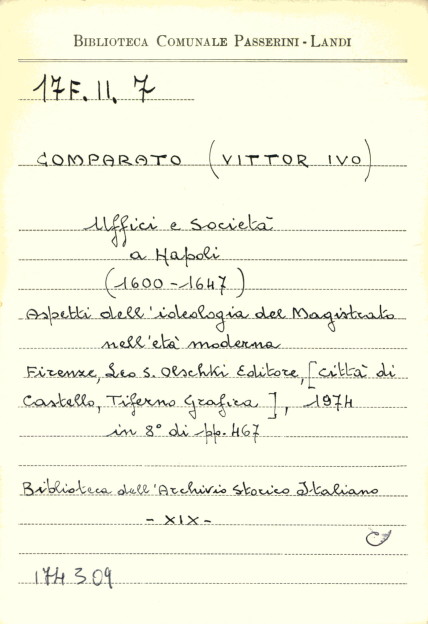 BIBLIOTECA COMUNALE PASSERINI-LANDI
17F. II. 7
COMPARATO (VITTOR IVO)
Uffici e Società
a Napoli
(1600-1647)
Aspetti dell'ideologia del Magistrato
nell'età moderna
Firenze, Leo S. Olschki Editore, [Città di
Castello, Tiferno Grafica], 1974
in 8° di pp. 467
Biblioteca dell'Archivio Storico Italiano
- XIX -
174309